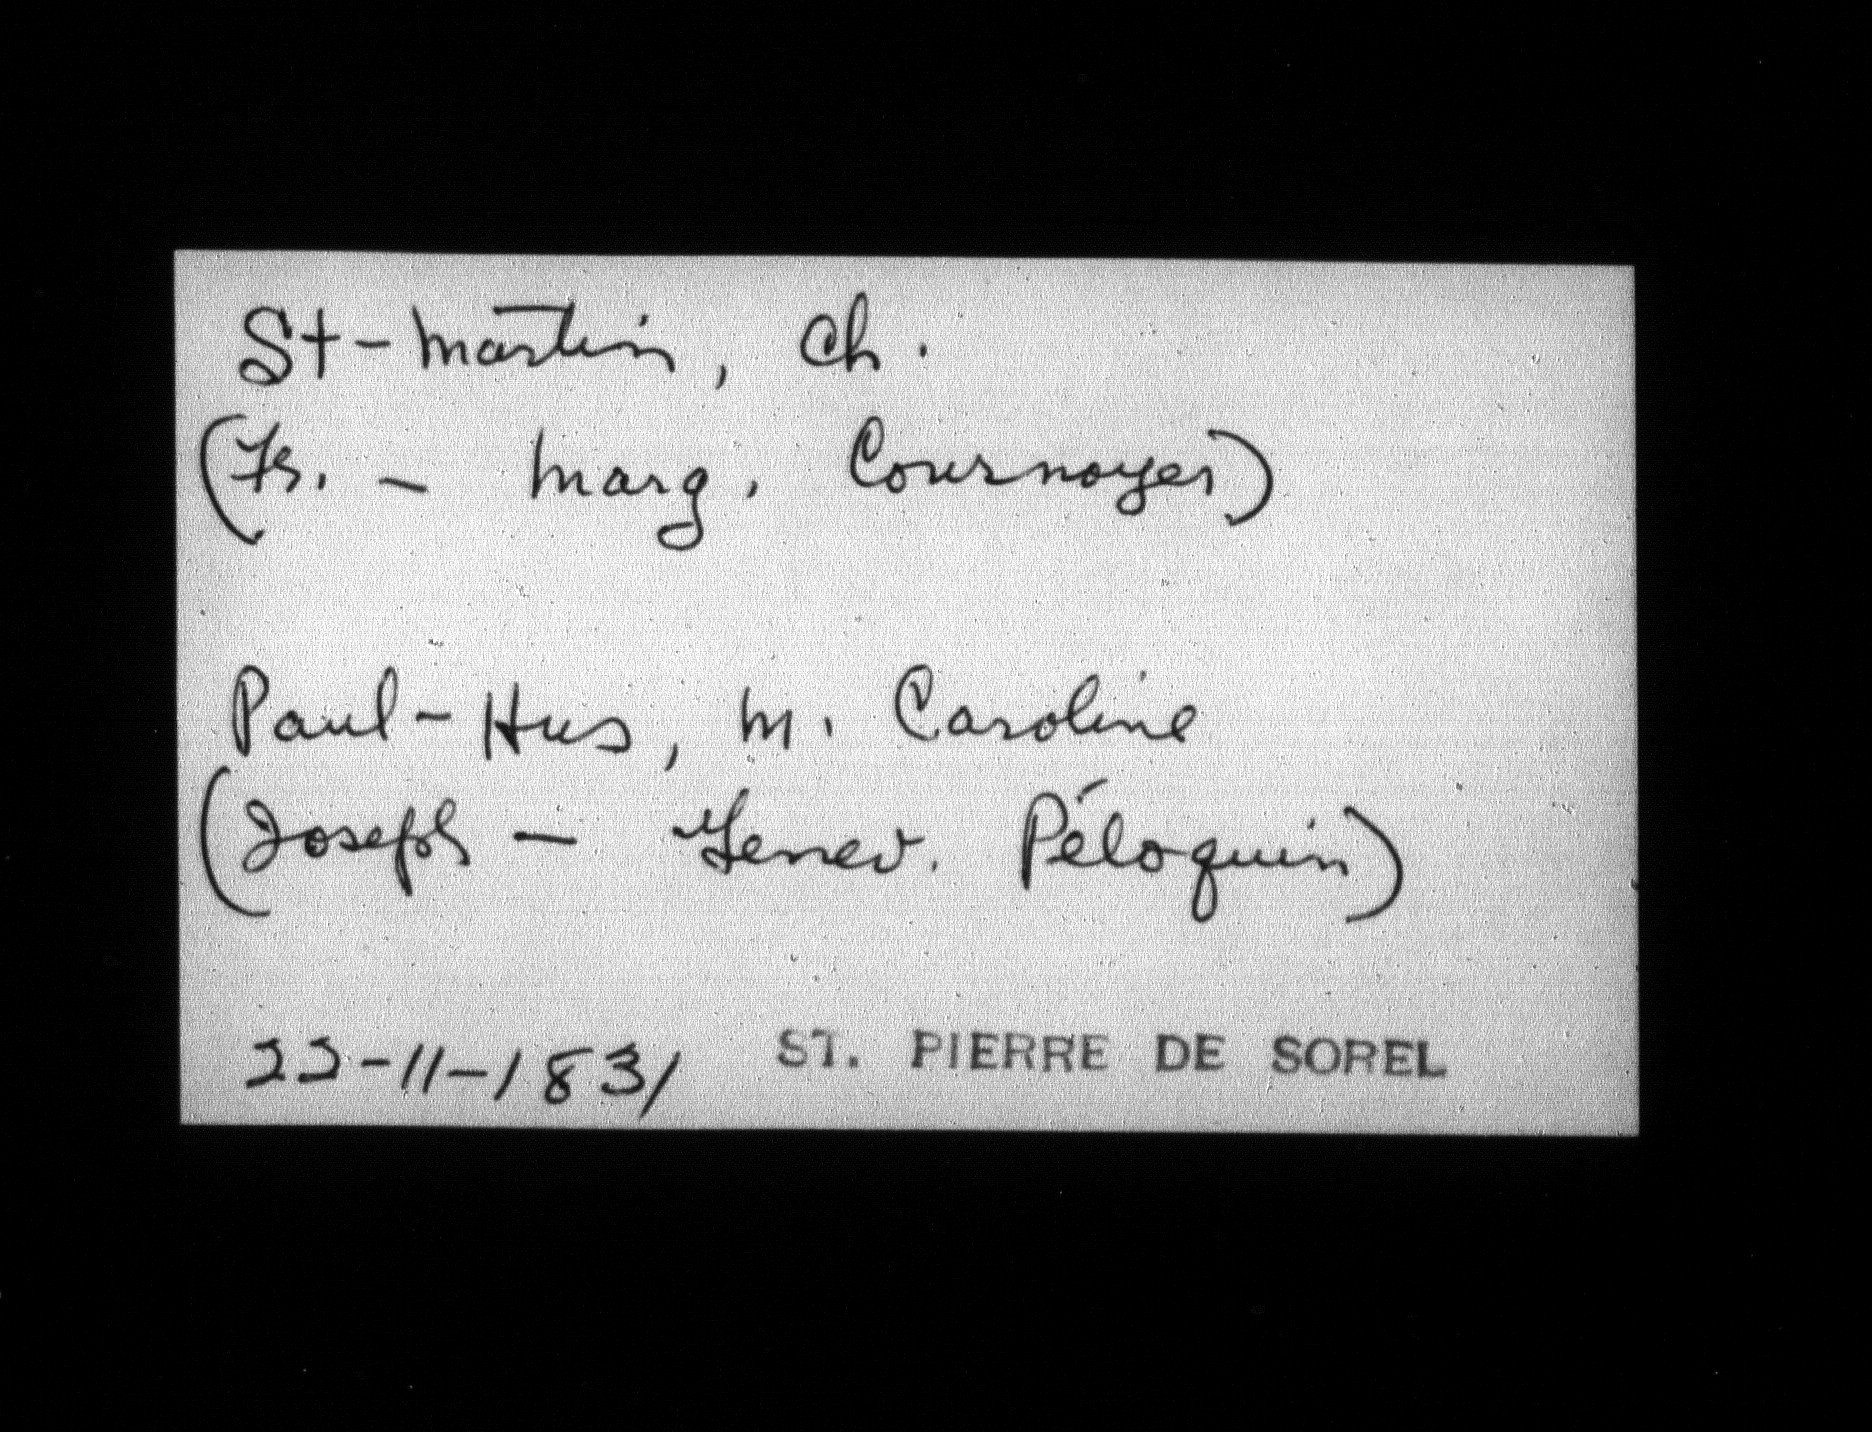 St-Martin, Ch.
(Fs. - Marg. Cournoyer)
Paul-Hus, M. Caroline
(Joseph - Genev. Péloquin)
22-11-1831 ST. PIERRE DE SOREL